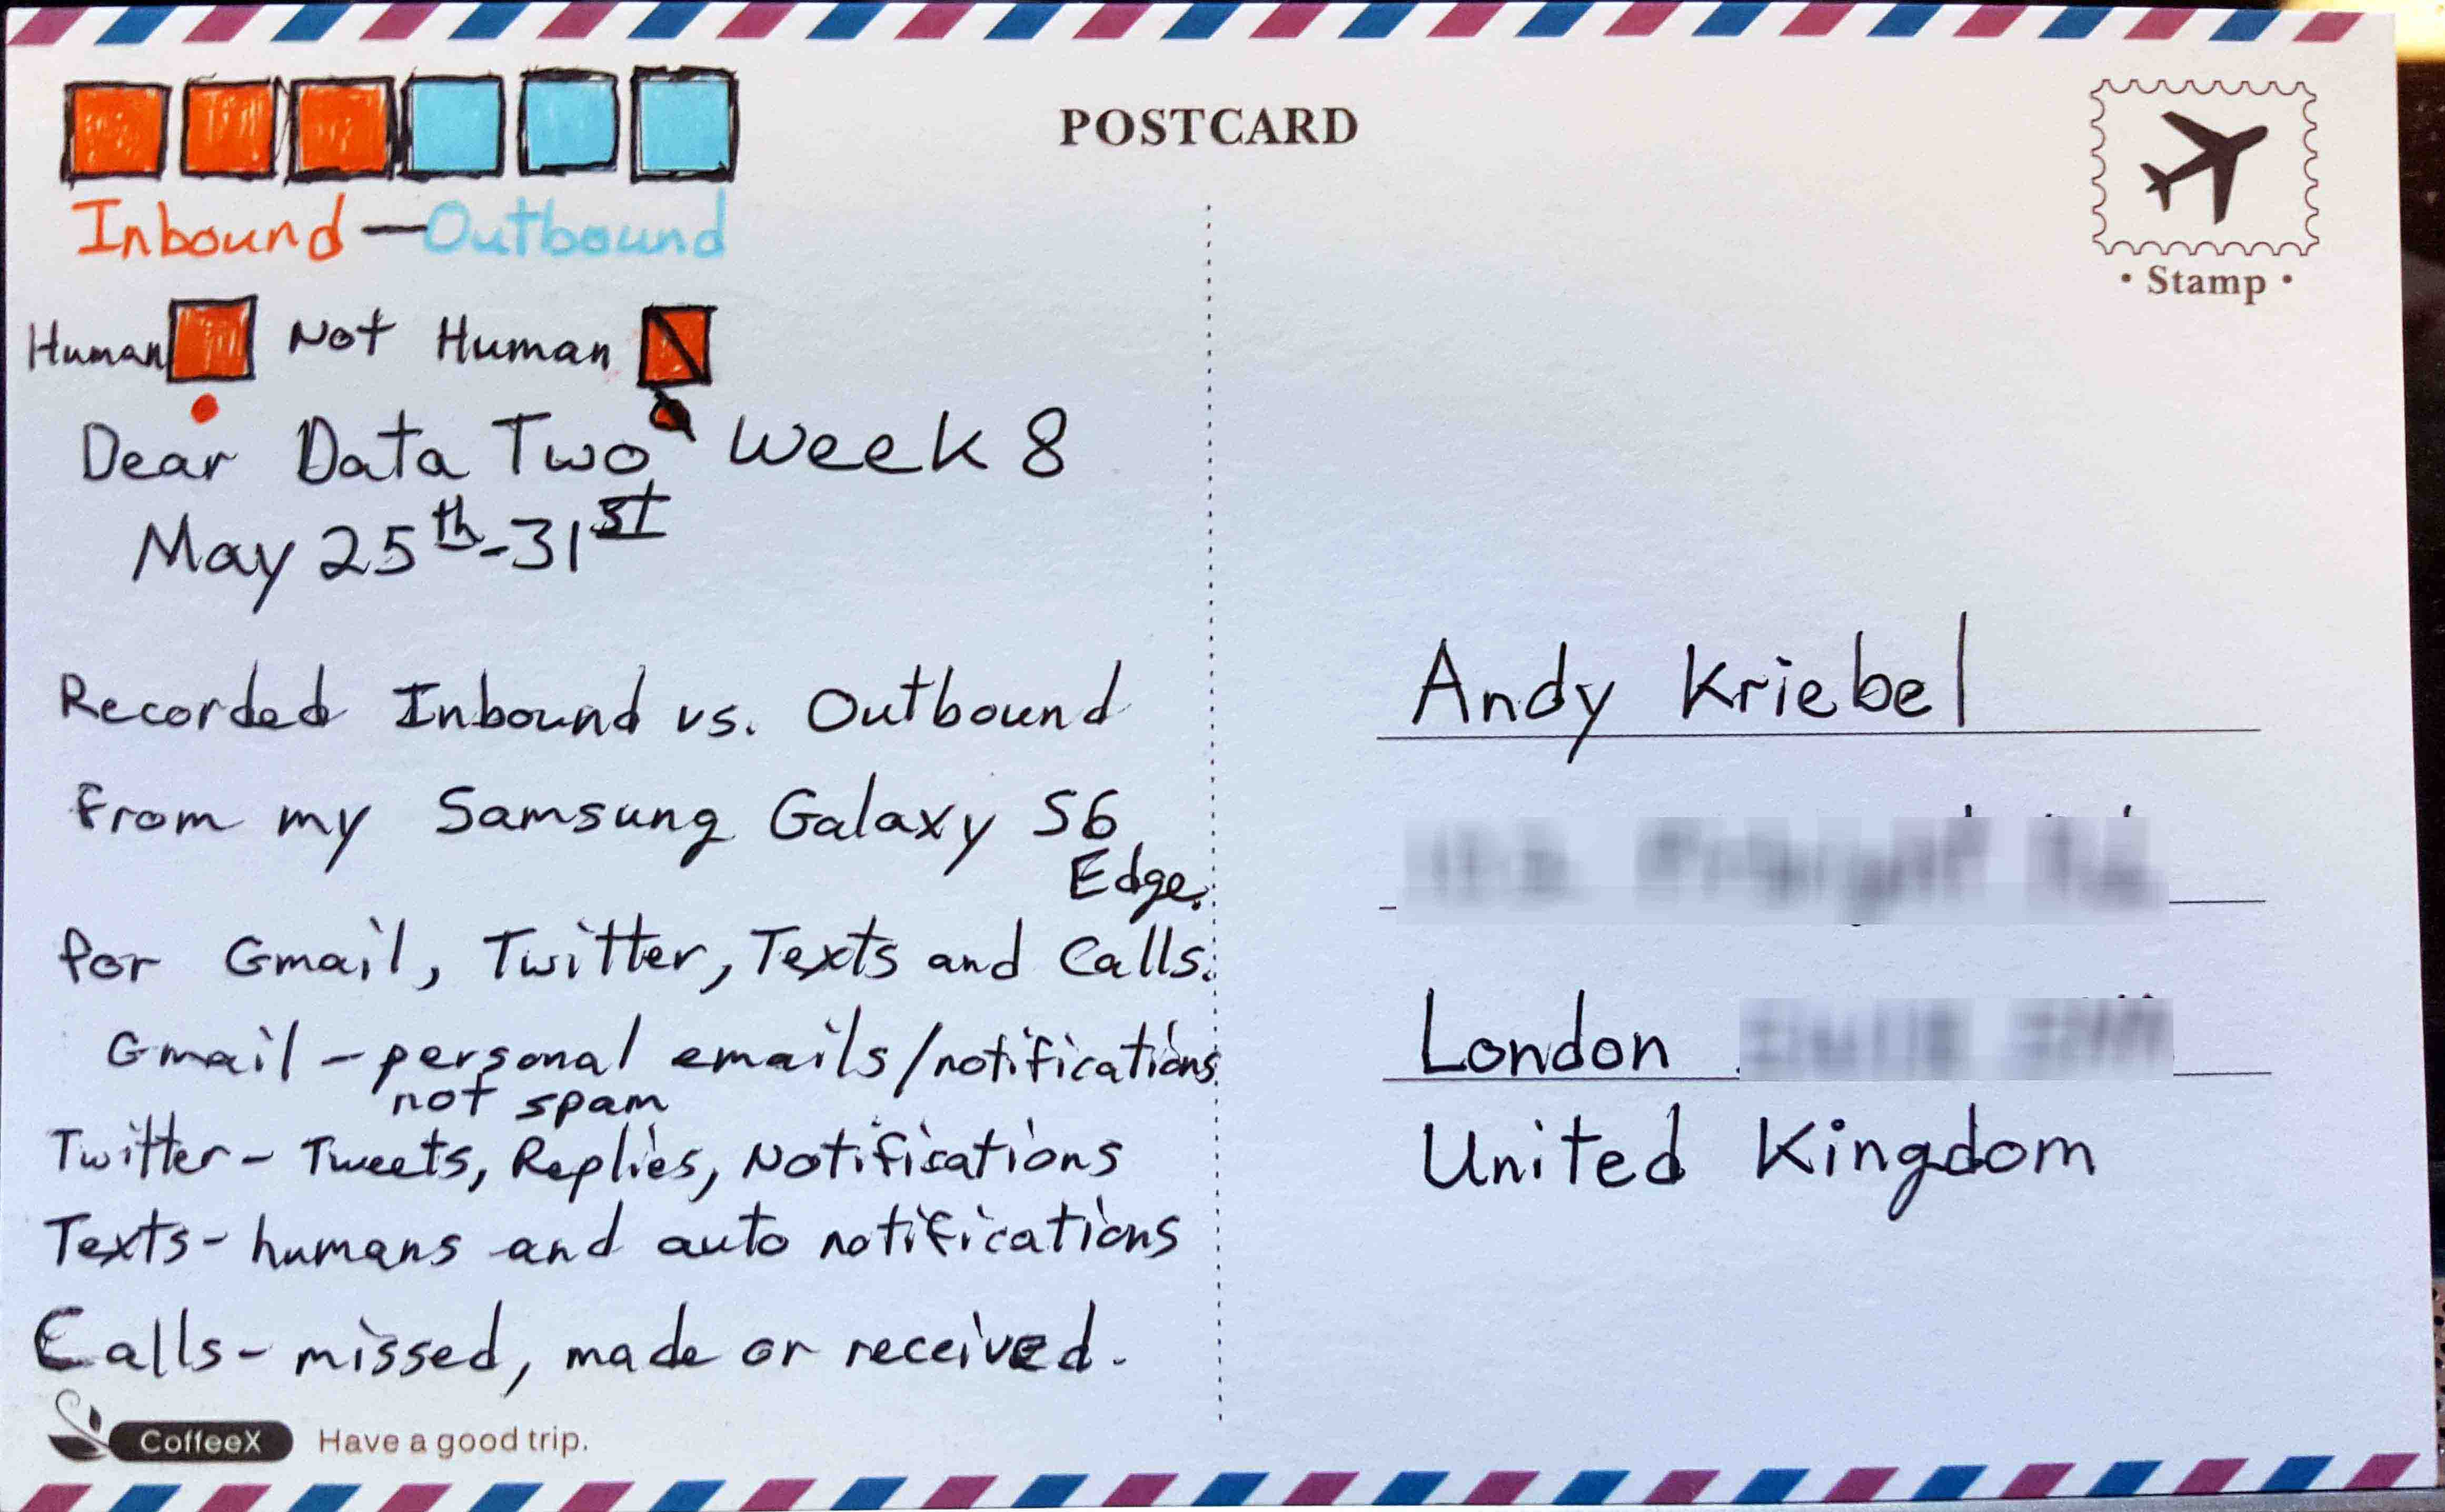 POSTCARD
• Stamp •
Inbound — Outbound
Human Not Human
Dear Data Two Week 8
May 25th - 31st
Recorded Inbound vs. Outbound
From my Samsung Galaxy S6
Edge.
for Gmail, Twitter, Texts and Calls.
Gmail - personal emails/notifications
not spam
Twitter - Tweets, Replies, Notifications
Texts - humans and auto notifications
Calls - missed, made or received.
CoffeeX Have a good trip.
Andy Kriebel
London
United Kingdom